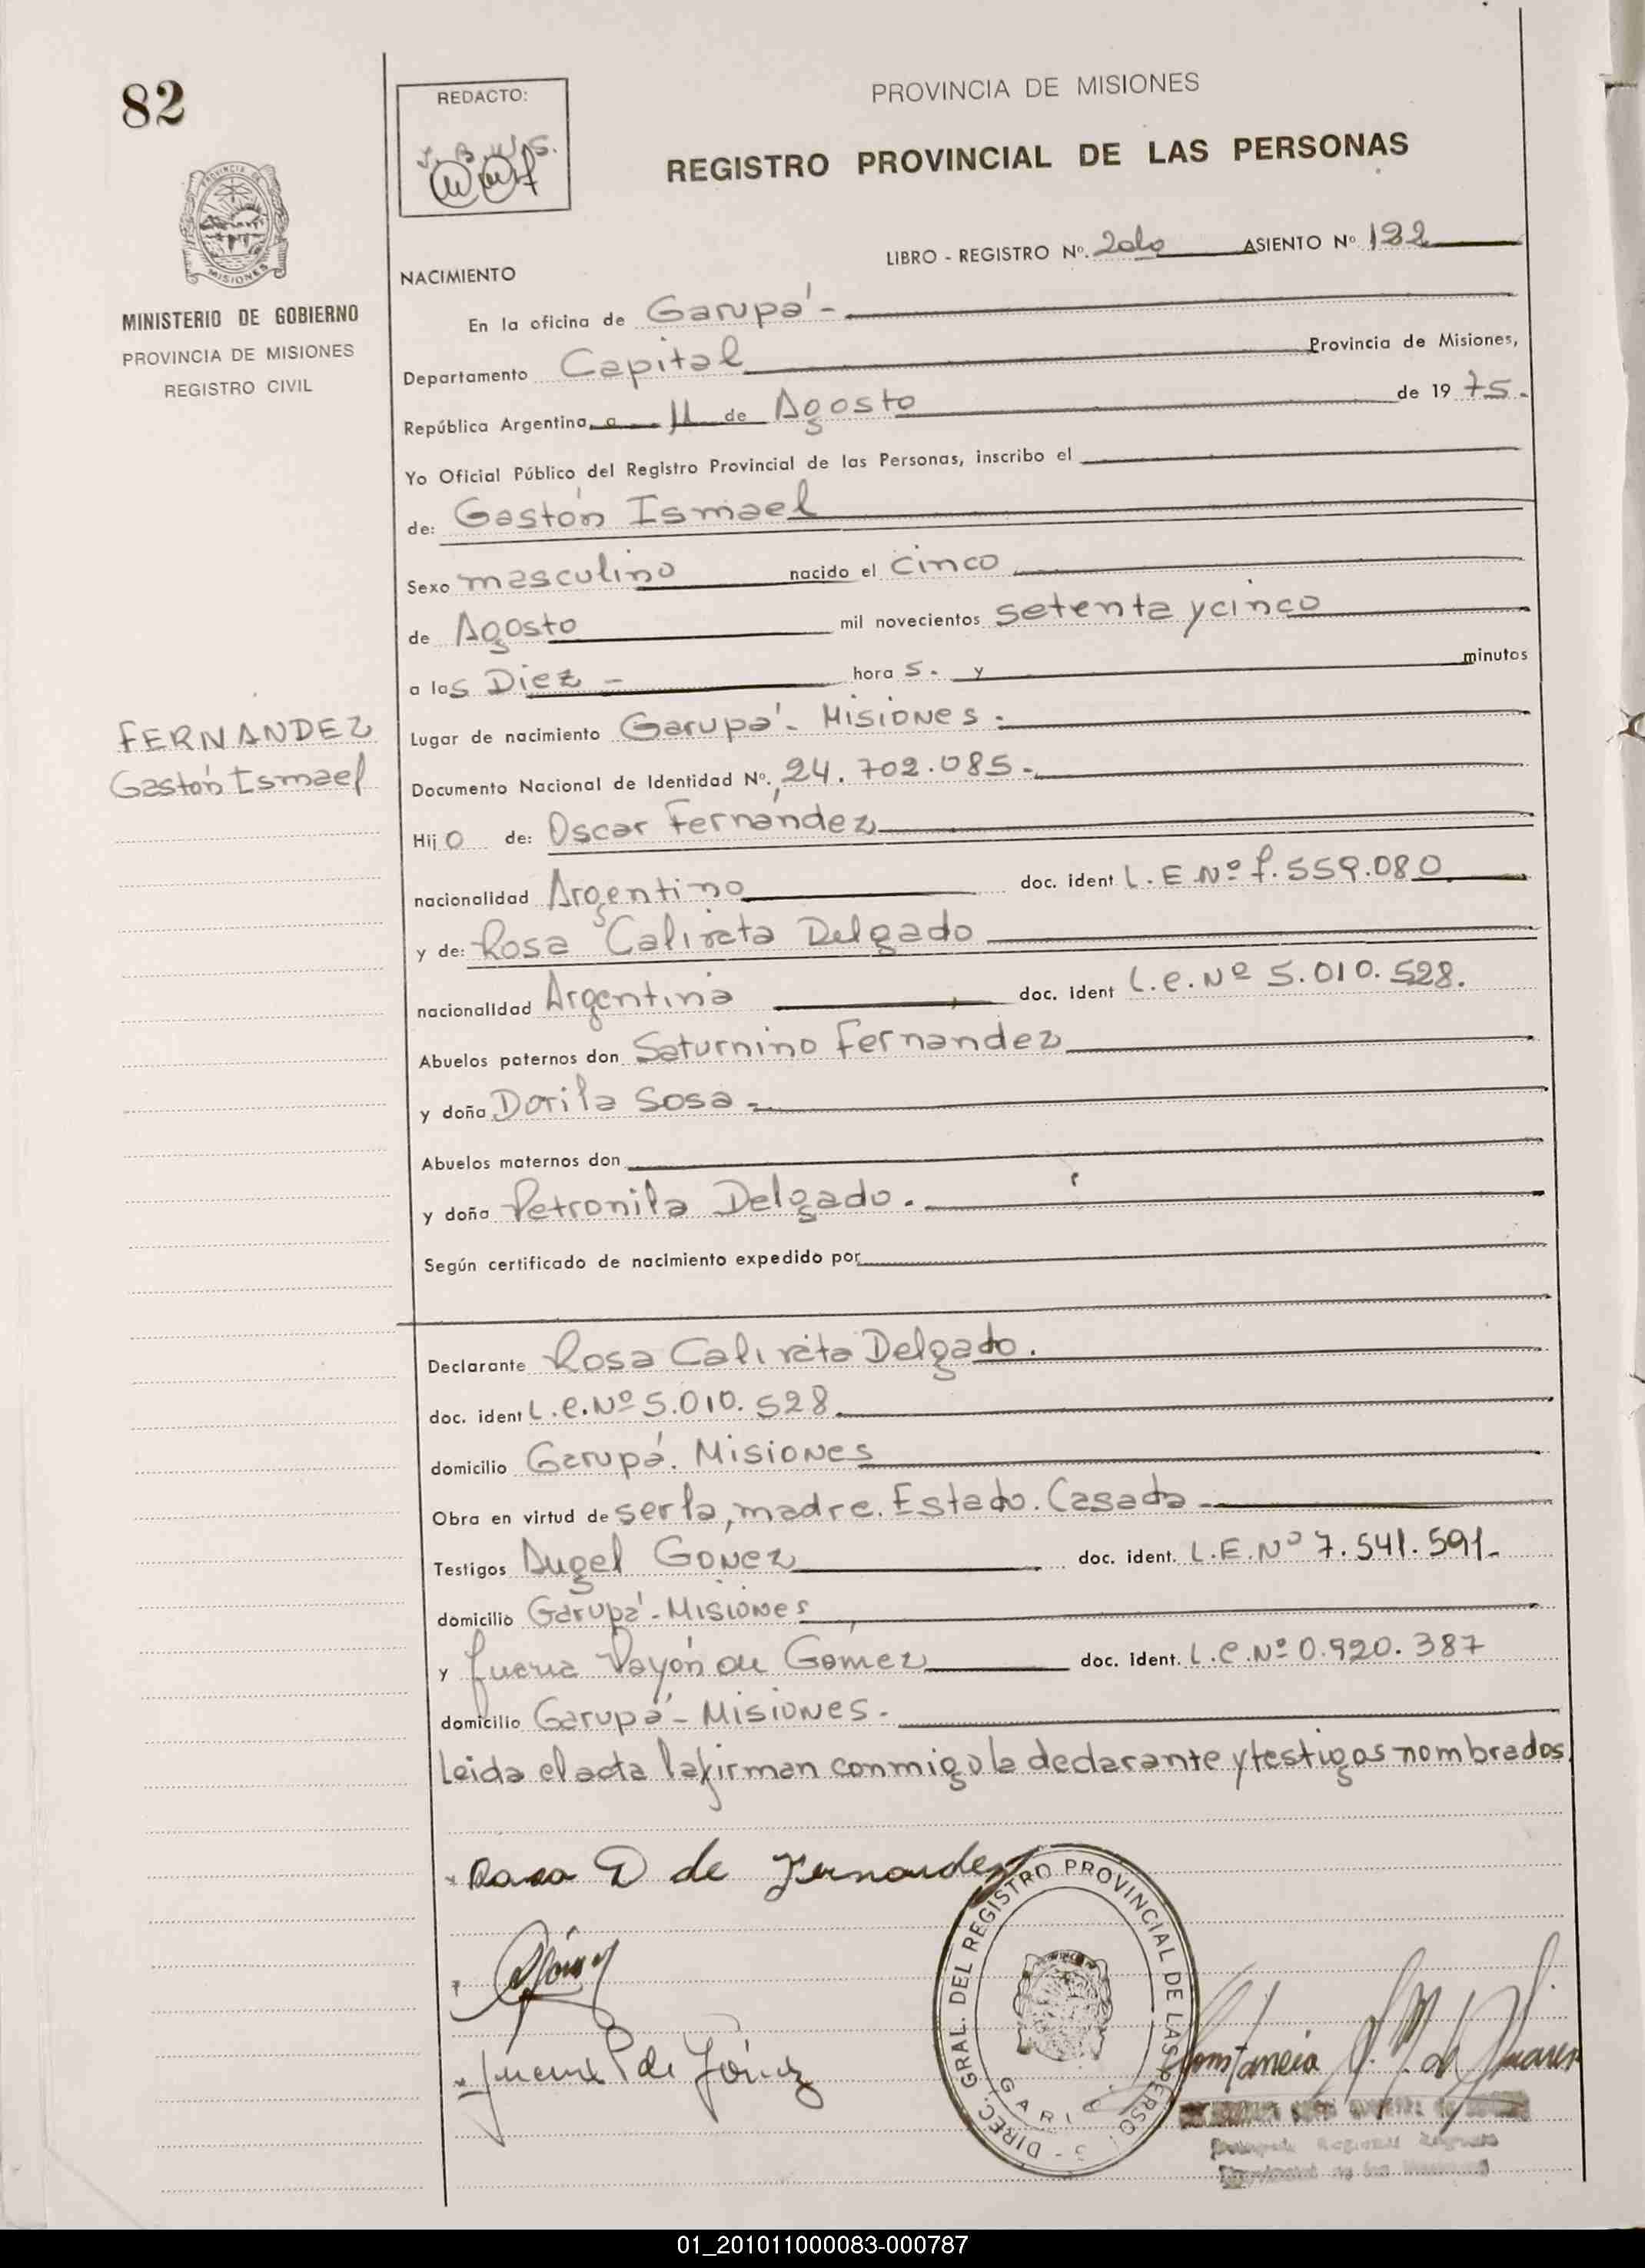 82
REDACTO:
PROVINCIA DE MISIONES
REGISTRO PROVINCIAL DE LAS PERSONAS
LIBRO - REGISTRO Nº. 2do ASIENTO Nº 132
MINISTERIO DE GOBIERNO
PROVINCIA DE MISIONES
REGISTRO CIVIL
NACIMIENTO
En la oficina de Garupá -
Departamento Capital Provincia de Misiones,
República Argentina, a 11 de Agosto de 1975.
Yo Oficial Público del Registro Provincial de las Personas, inscribo el
de: Gastón Ismael
Sexo masculino nacido el cinco
de Agosto mil novecientos setenta y cinco
a las Diez - hora s. y minutos
FERNANDEZ
Gastón Ismael
Lugar de nacimiento Garupá - Misiones -
Documento Nacional de Identidad Nº. 24.702.085 -
Hijo de: Oscar Fernández
nacionalidad Argentino doc. ident L.E Nº 7.559.080
y de: Rosa Delgado
nacionalidad Argentina doc. ident L.C. Nº 5.010.528.
Abuelos paternos don Saturnino Fernandez
y doña Dorila Sosa -
Abuelos maternos don
y doña Petronila Delgado.
Según certificado de nacimiento expedido por
Declarante Rosa Delgado.
doc. ident L.C. Nº 5.010.528
domicilio Garupá. Misiones
Obra en virtud de ser la madre. Estado. Casada -
Testigos Angel Gomez doc. ident. L.E. Nº 7.541.591-
domicilio Garupá - Misiones
y Payón de Gómez doc. ident. L.C. Nº 0.920.387
domicilio Garupá - Misiones -
Leida el acta la firman conmigo la declarante y testigos nombrados
Rosa D de Fernandez
P de Gómez
DIREC. GRAL. DEL REGISTRO PROVINCIAL DE LAS PERSO
Constancia de Juarez
01_201011000083-000787